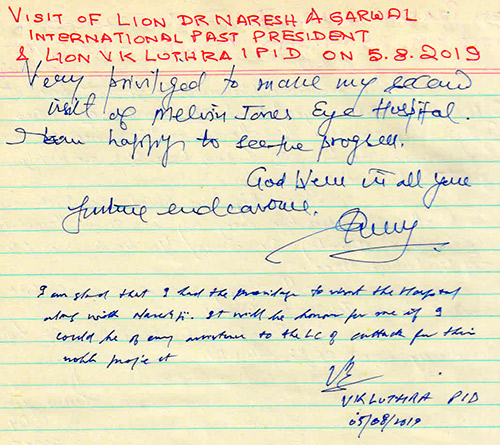 VISIT OF LION DR NARESH AGARWAL
INTERNATIONAL PAST PRESIDENT
& LION VK LUTHRA 1 PID ON 5.8.2019
Very privileged to make my second
visit of Melvin Jones Eye Hospital.
I am happy to see the progress.
God bless in all your
future endeavours.
I am glad that I had the privilege to visit the Hospital
along with Naresh ji. It will be honour for me if I
could be of any assistance to the LC of cuttack for this
noble project
VK LUTHRA PID
05/08/2019